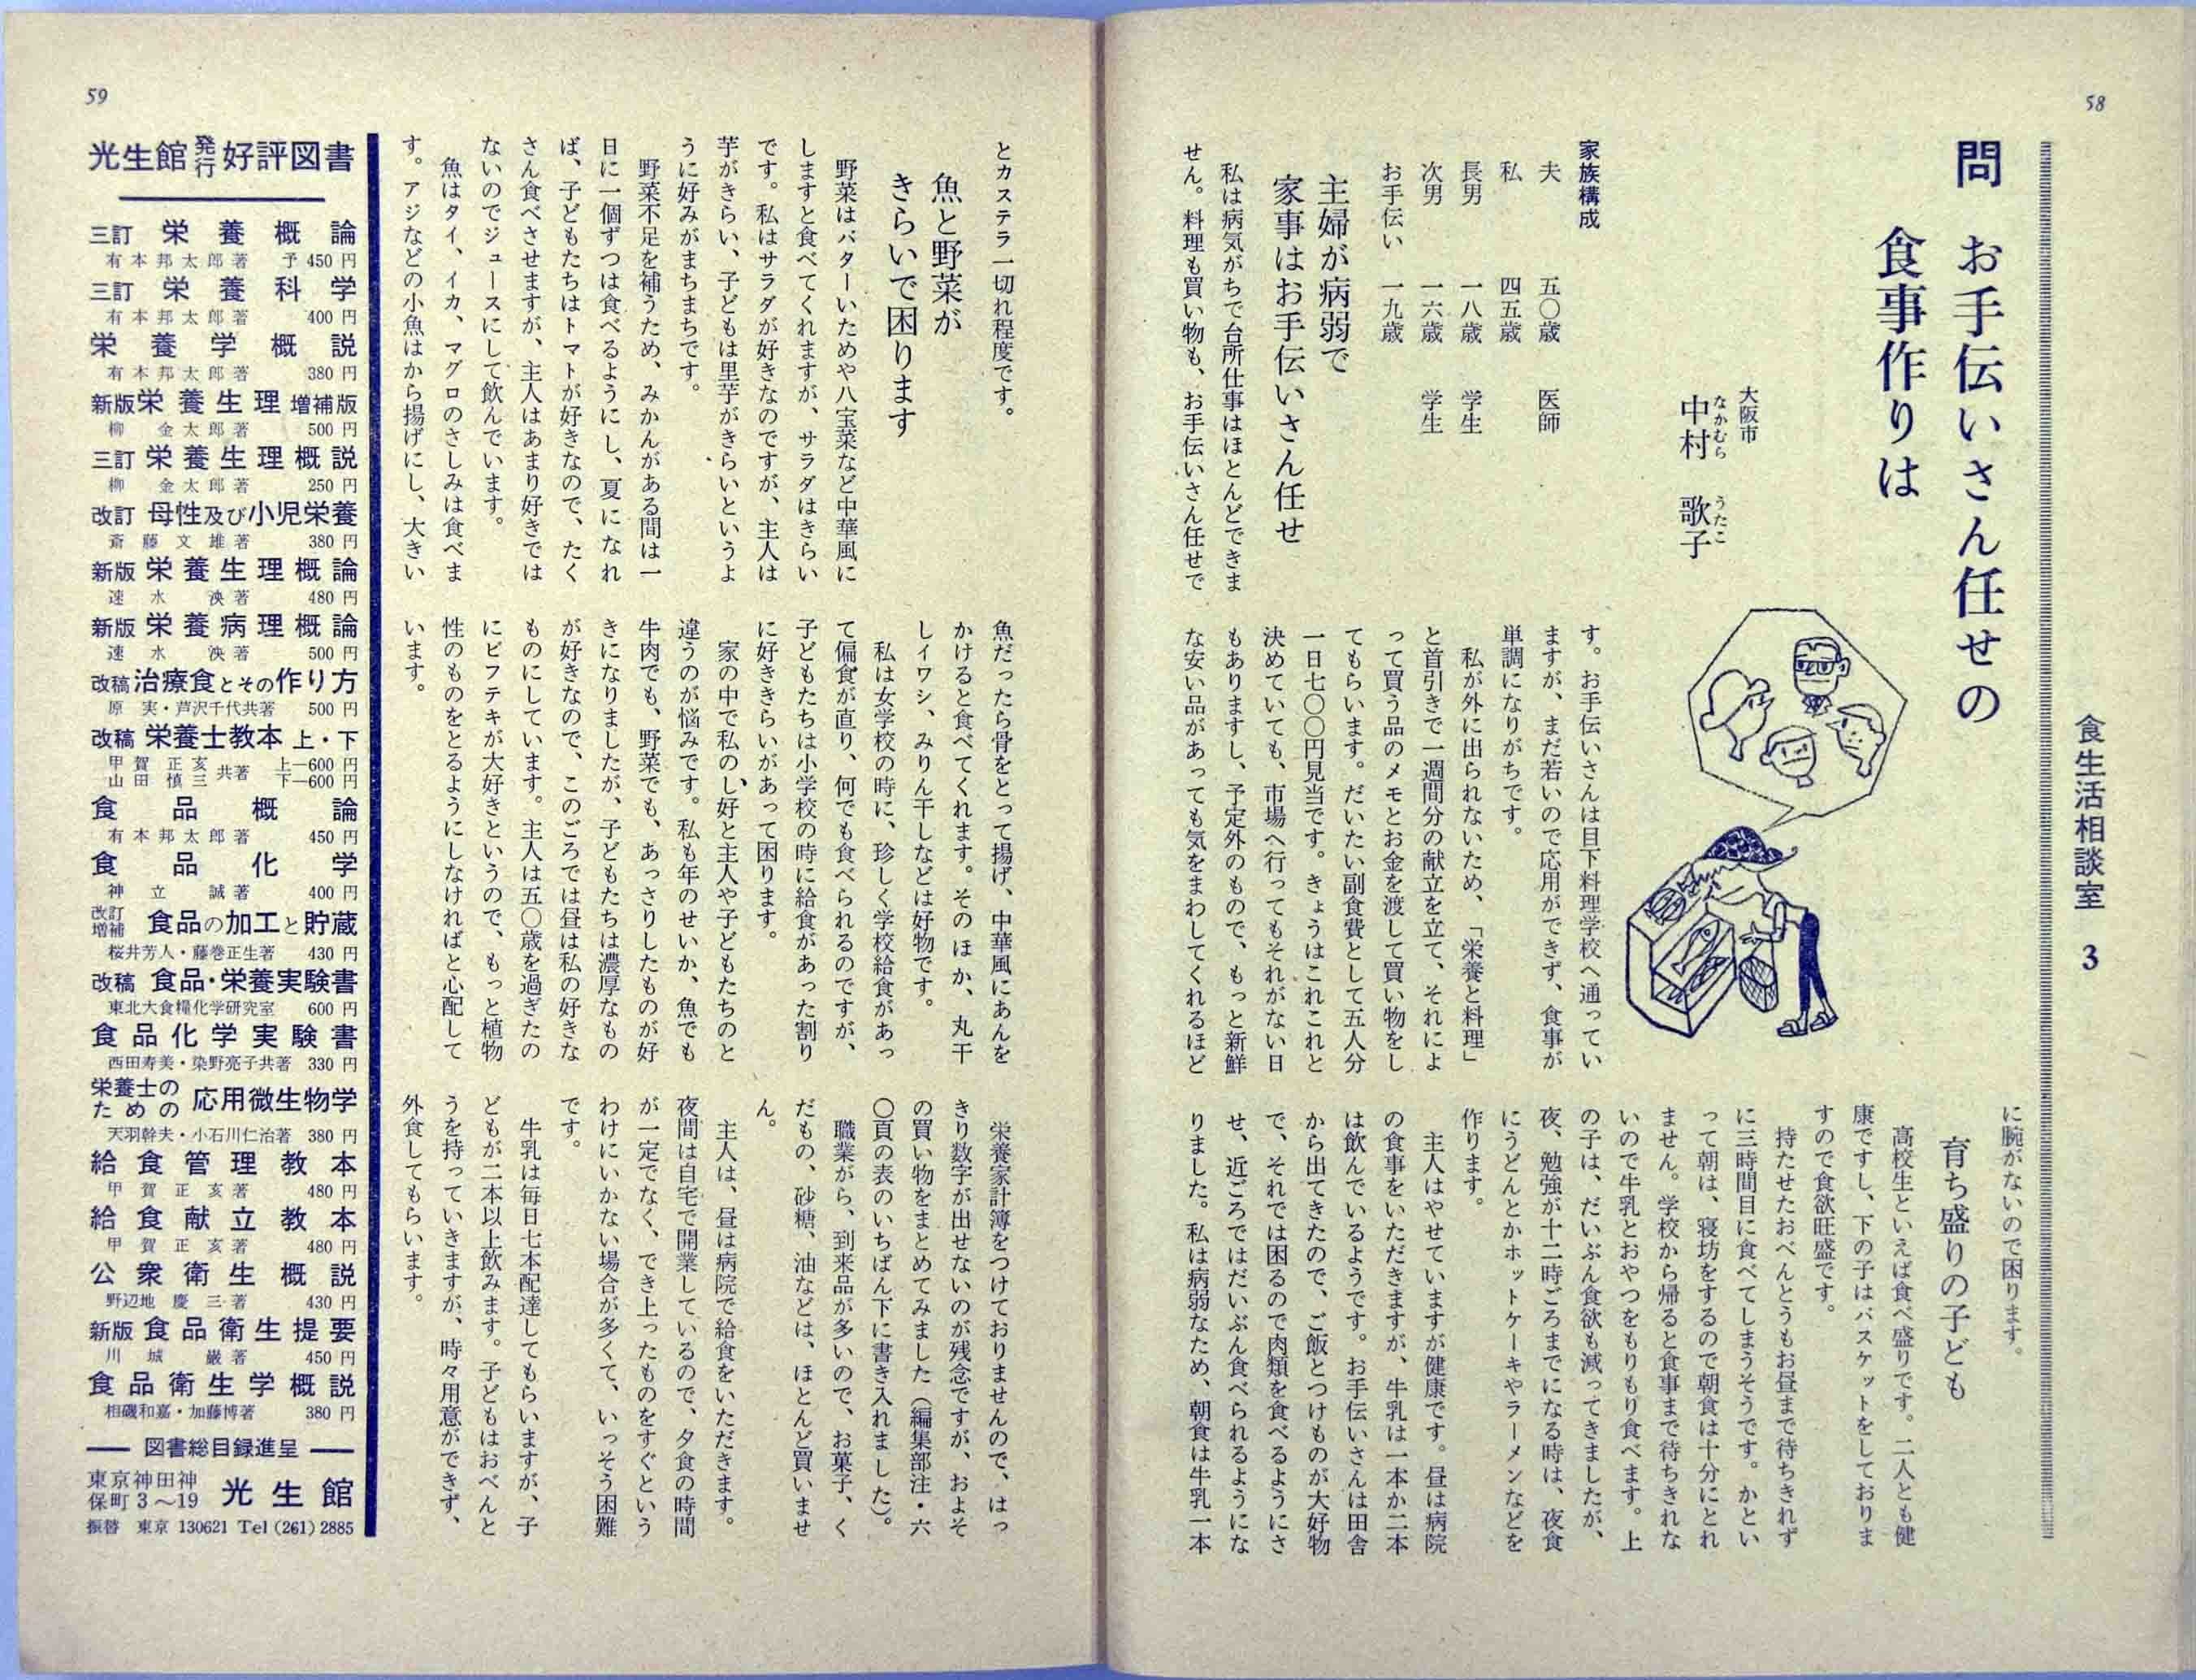 58
食生活相談室 3
問 お手伝いさん任せの
食事作りは
大阪市
中村 歌子
なかむら うたこ
家族構成
夫 五〇歳 医師
私 四五歳
長男 一八歳 学生
次男 一六歳 学生
お手伝い 一九歳
主婦が病弱で
家事はお手伝いさん任せ
私は病気がちで台所仕事はほとんどできま
せん。料理も買い物も、お手伝いさん任せで
す。お手伝いさんは目下料理学校へ通ってい
ますが、まだ若いので応用ができず、食事が
単調になりがちです。
私が外に出られないため、「栄養と料理」
と首引きで一週間分の献立を立て、それによ
って買う品のメモとお金を渡して買い物をし
てもらいます。だいたい副食費として五人分
一日七〇〇円見当です。きょうはこれこれと
決めていても、市場へ行ってもそれがない日
もありますし、予定外のもので、もっと新鮮
な安い品があっても気をまわしてくれるほど
に腕がないので困ります。
育ち盛りの子ども
高校生といえば食べ盛りです。二人とも健
康ですし、下の子はバスケットをしておりま
すので食欲旺盛です。
持たせたおべんとうもお昼まで待ちきれず
に三時間目に食べてしまうそうです。かとい
って朝は、寝坊をするので朝食は十分にとれ
ません。学校から帰ると食事まで待ちきれな
いので牛乳とおやつをもりもり食べます。上
の子は、だいぶん食欲も減ってきましたが、
夜、勉強が十二時ごろまでになる時は、夜食
にうどんとかホットケーキやラーメンなどを
作ります。
主人はやせていますが健康です。昼は病院
の食事をいただきますが、牛乳は一本か二本
は飲んでいるようです。お手伝いさんは田舎
から出てきたので、ご飯とつけものが大好物
で、それでは困るので肉類を食べるようにさ
せ、近ごろではだいぶん食べられるようにな
りました。私は病弱なため、朝食は牛乳一本
とカステラ一切れ程度です。
魚と野菜が
きらいで困ります
野菜はバターいためや八宝菜など中華風に
しますと食べてくれますが、サラダはきらい
です。私はサラダが好きなのですが、主人は
芋がきらい、子どもは里芋がきらいというよ
うに好みがまちまちです。
野菜不足を補うため、みかんがある間は一
日に一個ずつは食べるようにし、夏になれ
ば、子どもたちはトマトが好きなので、たく
さん食べさせますが、主人はあまり好きでは
ないのでジュースにして飲んでいます。
魚はタイ、イカ、マグロのさしみは食べま
す。アジなどの小魚はから揚げにし、大きい
魚だったら骨をとって揚げ、中華風にあんを
かけると食べてくれます。そのほか、丸干
しイワシ、みりん干しなどは好物です。
私は女学校の時に、珍しく学校給食があっ
て偏食が直り、何でも食べられるのですが、
子どもたちは小学校の時に給食があった割り
に好ききらいがあって困ります。
家の中で私のし好と主人や子どもたちのと
違うのが悩みです。私も年のせいか、魚でも
牛肉でも、野菜でも、あっさりしたものが好
きになりましたが、子どもたちは濃厚なもの
が好きなので、このごろでは昼は私の好きな
ものにしています。主人は五〇歳を過ぎたの
にビフテキが大好きというので、もっと植物
性のものをとるようにしなければと心配して
います。
栄養家計簿をつけておりませんので、はっ
きり数字が出せないのが残念ですが、およそ
の買い物をまとめてみました（編集部注・六
〇頁の表のいちばん下に書き入れました）。
職業がら、到来品が多いので、お菓子、く
だもの、砂糖、油などは、ほとんど買いませ
ん。
主人は、昼は病院で給食をいただきます。
夜間は自宅で開業しているので、夕食の時間
が一定でなく、でき上ったものをすぐという
わけにいかない場合が多くて、いっそう困難
です。
牛乳は毎日七本配達してもらいますが、子
どもが二本以上飲みます。子どもはおべんと
うを持っていきますが、時々用意ができず、
外食してもらいます。
59
光生館発行好評図書
三訂 栄養概論
有本邦太郎著 予450円
三訂 栄養科学
有本邦太郎著 400円
栄養学概説
有本邦太郎著 380円
新版 栄養生理 増補版
柳 金太郎著 500円
三訂 栄養生理概説
柳 金太郎著 250円
改訂 母性及び小児栄養
斎藤文雄著 380円
新版 栄養生理概論
速水 泱著 480円
新版 栄養病理概論
速水 泱著 500円
改稿 治療食とその作り方
原 実・芦沢千代共著 500円
改稿 栄養士教本 上・下
甲賀正亥 上―600円
山田慎三 共著 下―600円
食品概論
有本邦太郎著 450円
食品化学
神立 誠著 400円
改訂増補 食品の加工と貯蔵
桜井芳人・藤巻正生著 430円
改稿 食品・栄養実験書
東北大食糧化学研究室 600円
食品化学実験書
西田寿美・染野亮子共著 330円
栄養士のための 応用微生物学
天羽幹夫・小石川仁治著 380円
給食管理教本
甲賀正亥著 480円
給食献立教本
甲賀正亥著 480円
公衆衛生概説
野辺地慶三著 430円
新版 食品衛生提要
川城 巌著 450円
食品衛生学概説
相磯和嘉・加藤博著 380円
図書総目録進呈
東京神田神
保町3〜19 光生館
振替 東京 130621 Tel (261) 2885